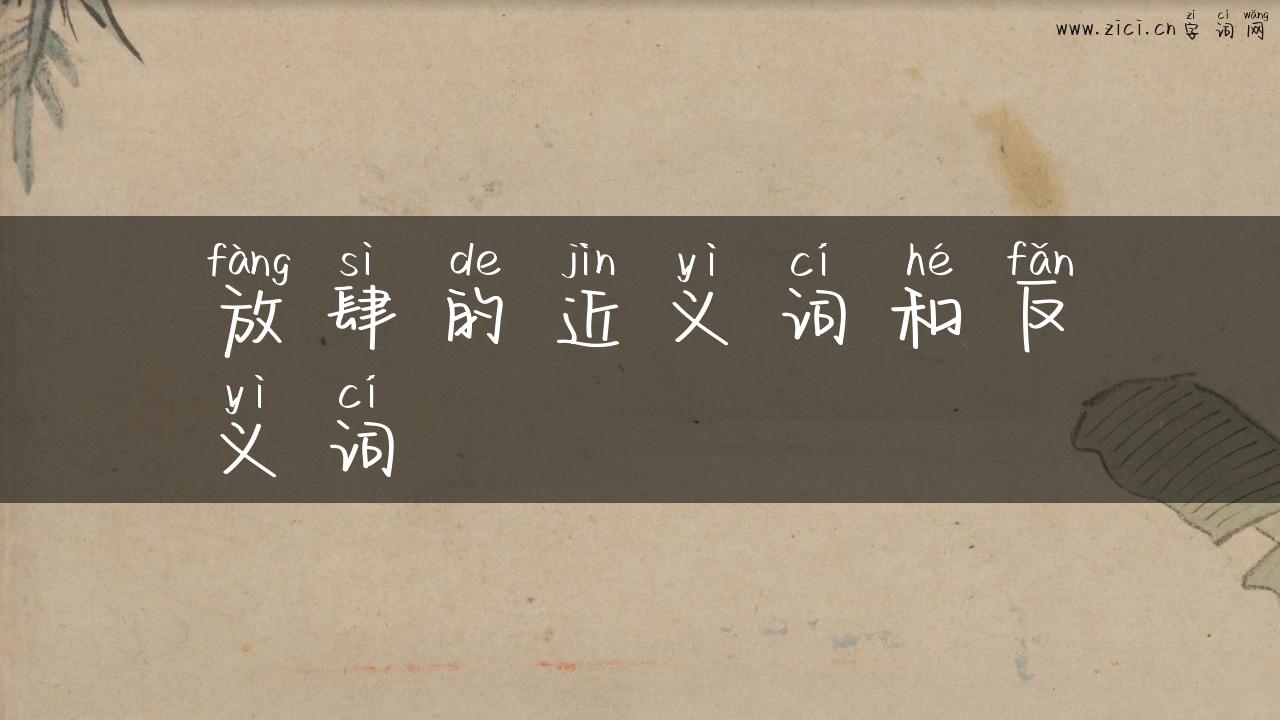 zì cí wǎng
www.zici.cn 字 词 网
fàng sì de jìn yì cí hé fǎn
放 肆 的 近 义 词 和 反
yì cí
义 词